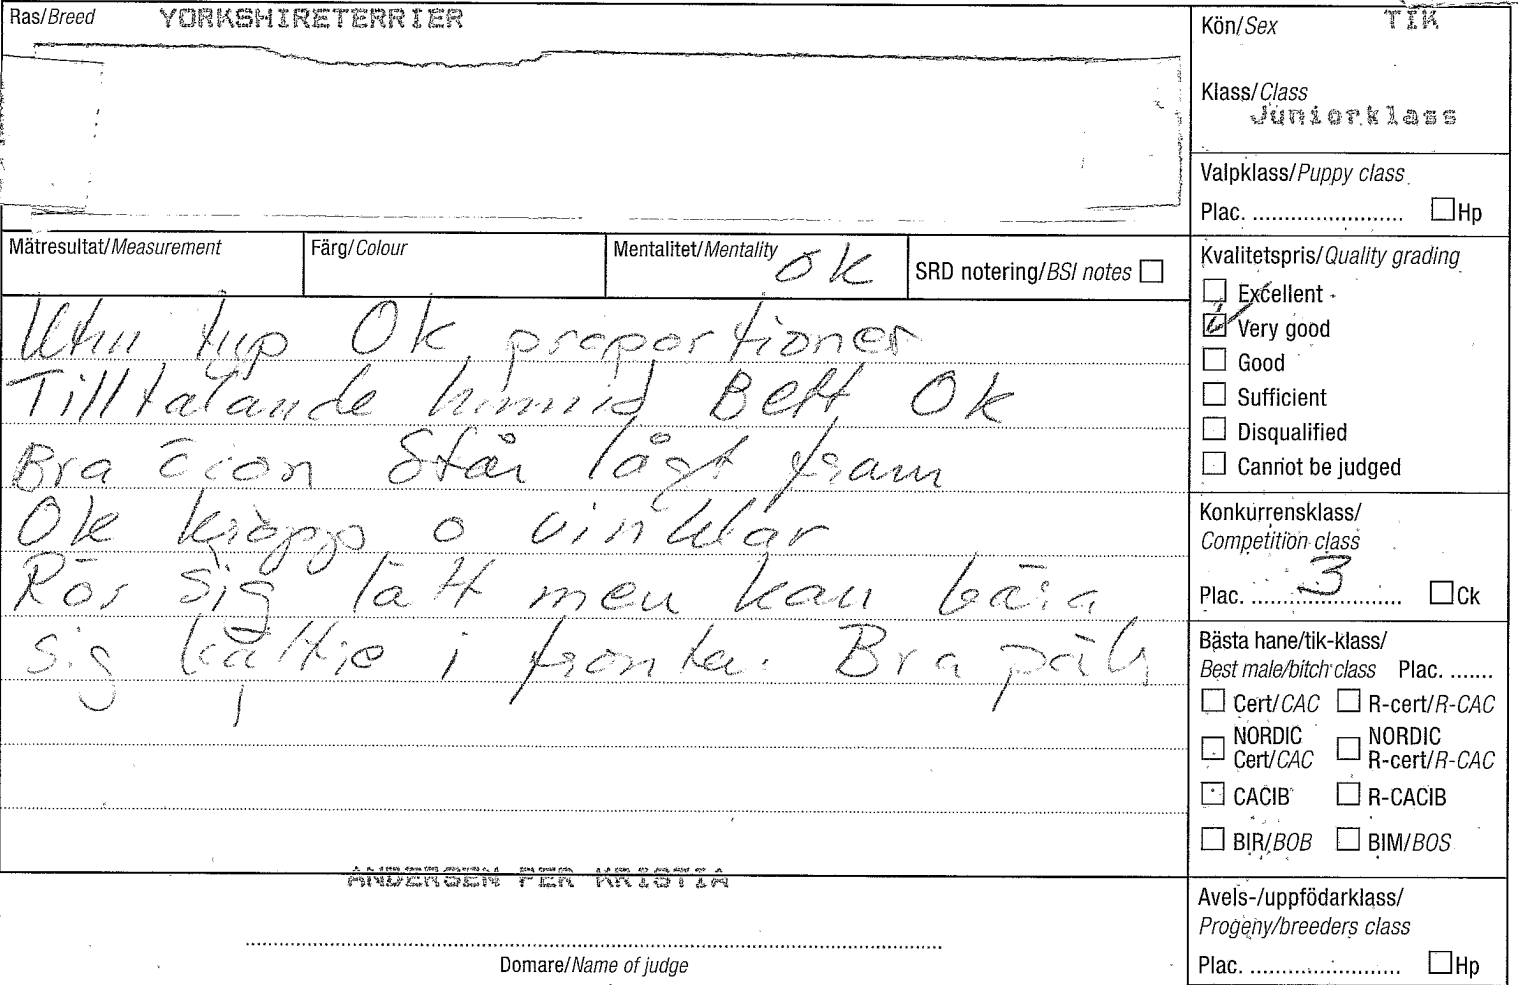 Ras/Breed YORKSHIRETERRIER
Kön/Sex TIK
Klass/Class
Juniorklass
Valpklass/Puppy class
Plac. ........................ Hp
Mätresultat/Measurement Färg/Colour Mentalitet/Mentality ok SRD notering/BSI notes
Kvalitetspris/Quality grading
Excellent
Very good
Good
Sufficient
Disqualified
Cannot be judged
typ Ok proportioner
Tilltalande Bett Ok
Bra Står lågt fram
Ok kropp o vinklar
Rör sig lätt men kan bära
sig i fronten. Bra päls
Konkurrensklass/
Competition class
Plac. 3 Ck
Bästa hane/tik-klass/
Best male/bitch class Plac. .......
Cert/CAC R-cert/R-CAC
NORDIC Cert/CAC NORDIC R-cert/R-CAC
CACIB R-CACIB
BIR/BOB BIM/BOS
ANDERSEN PER KRISTIA
Domare/Name of judge
Avels-/uppfödarklass/
Progeny/breeders class
Plac. ........................ Hp